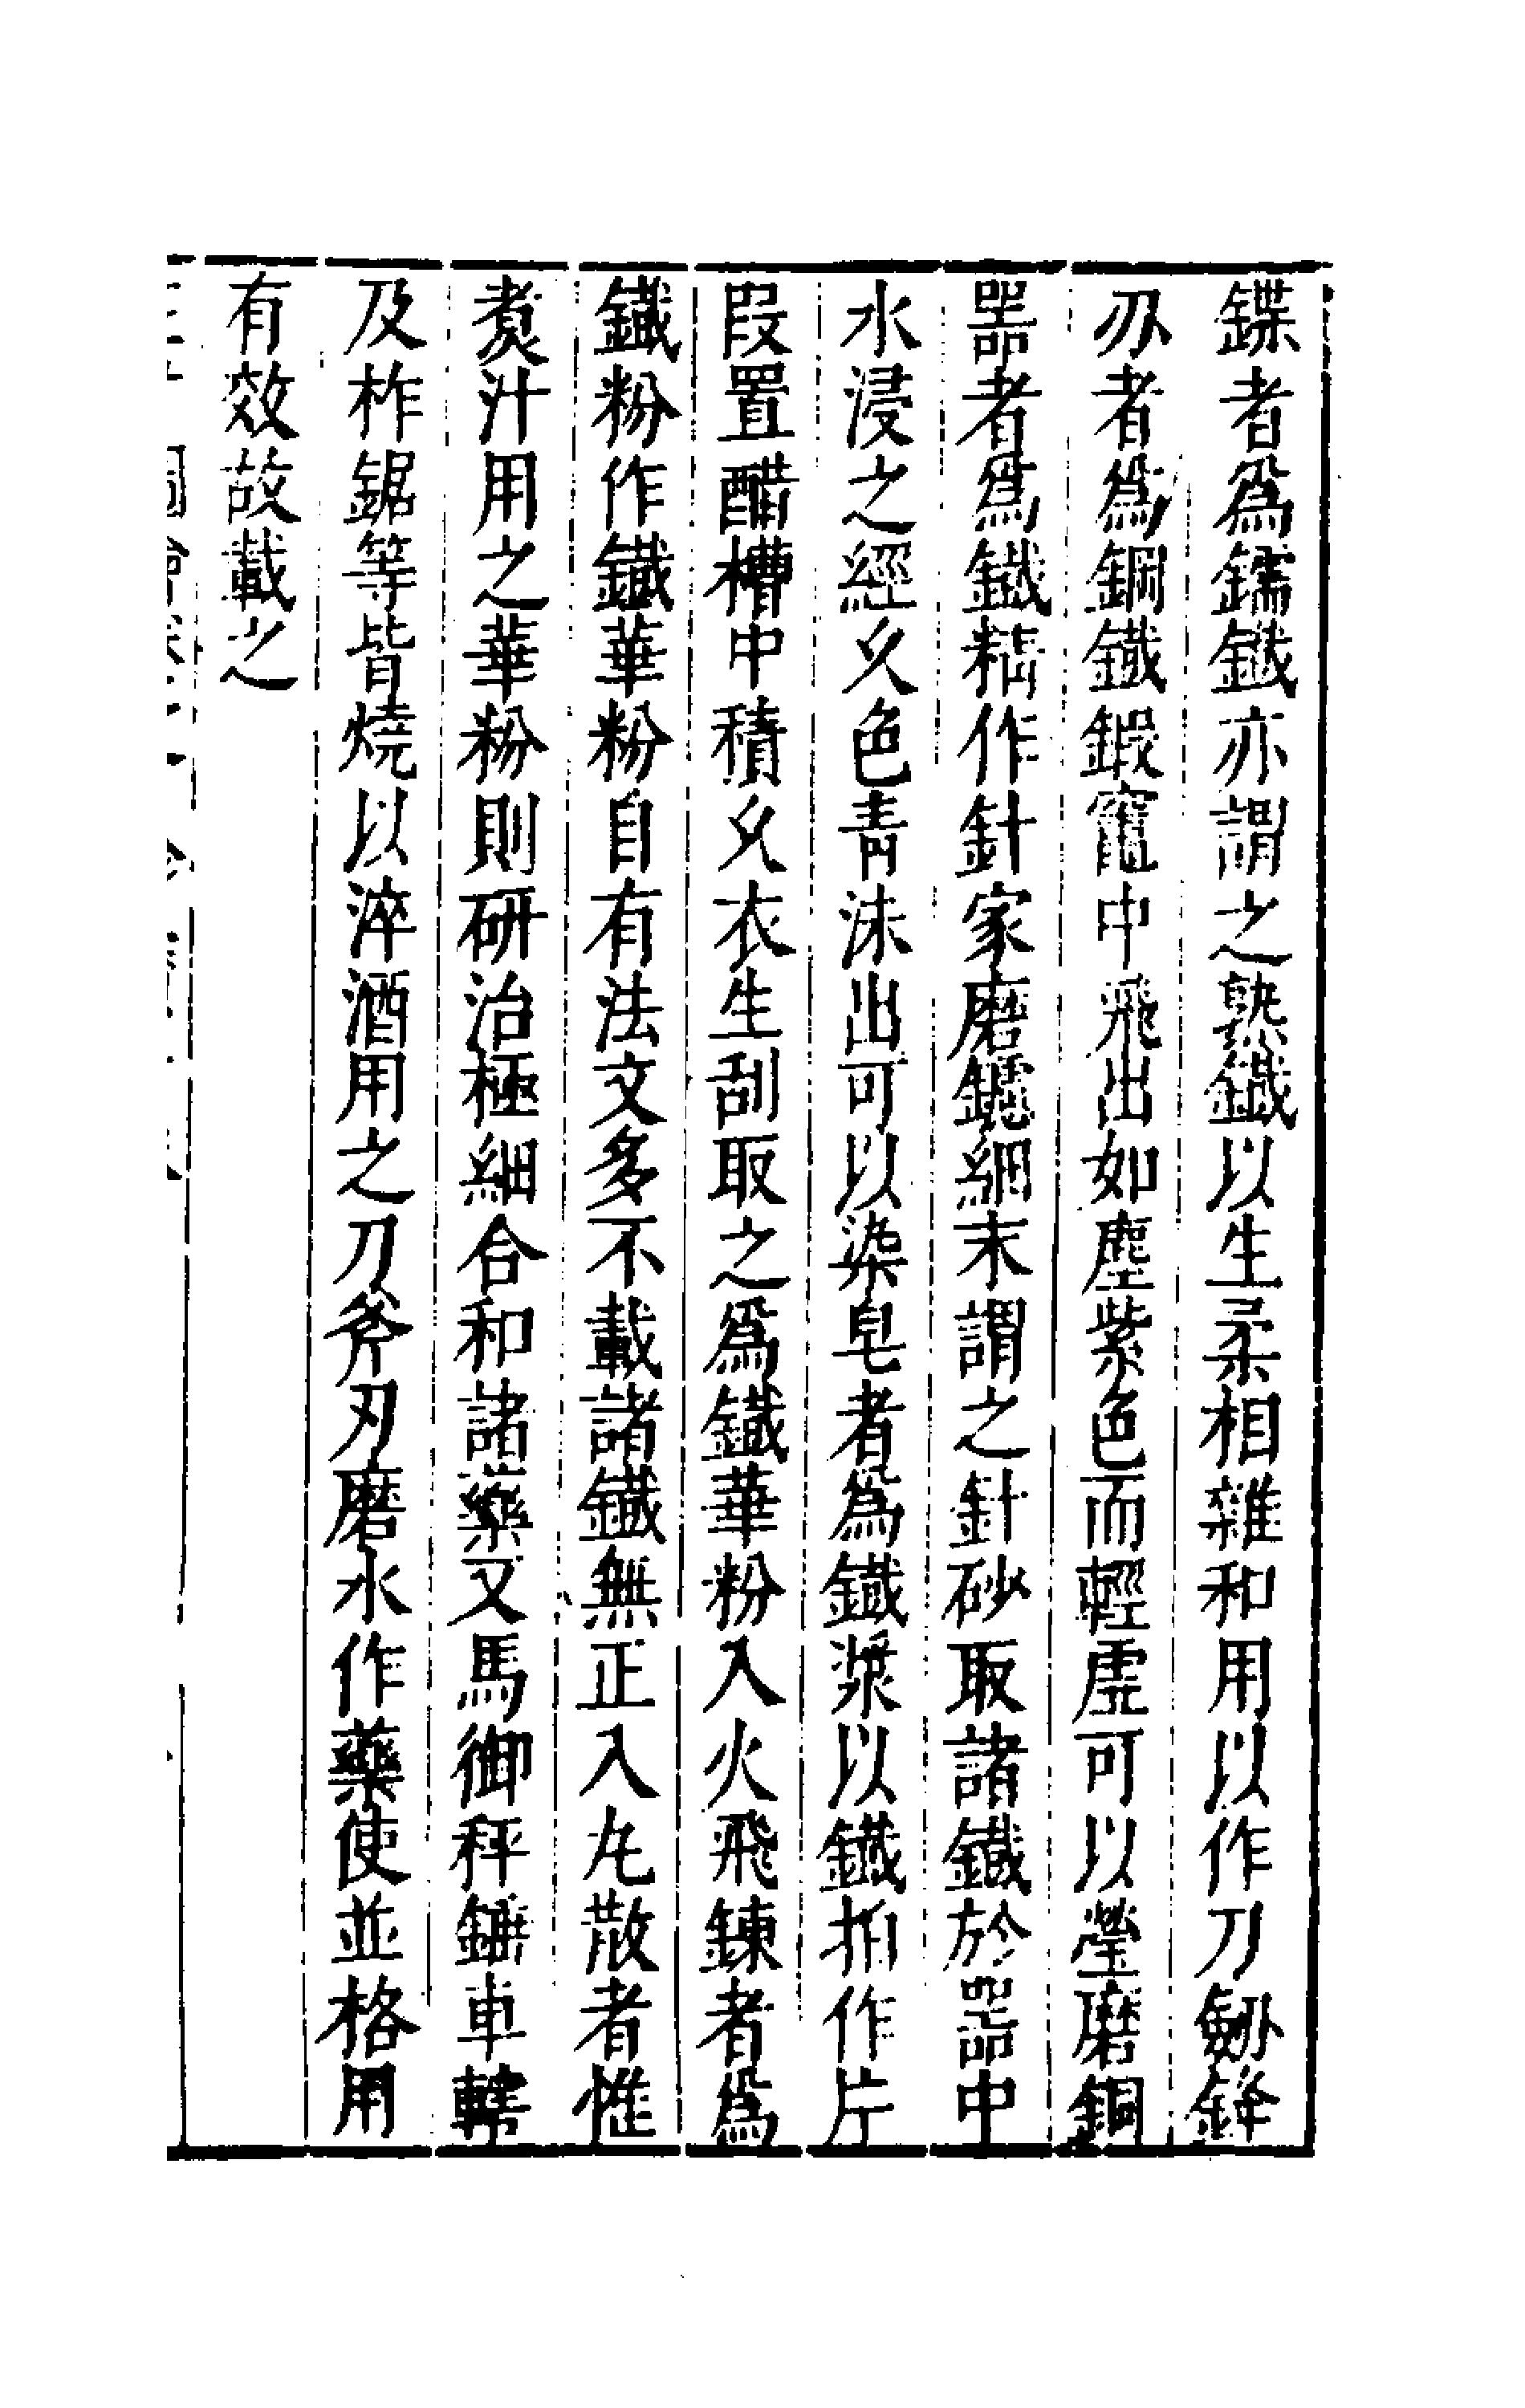 鍱者爲鑐鐵亦謂之熟鐵以生柔相雜和用以作刀劒鋒
刃者爲鋼鐵鍛竈中飛出如塵紫色而輕虛可以瑩磨銅
器者爲鐵精作針家磨鑢細末謂之針砂取諸鐵於器中
水浸之經久色青沫出可以染皂者爲鐵漿以鐵拍作片
段置醋槽中積久衣生刮取之爲鐵華粉入火飛鍊者爲
鐵粉作鐵華粉自有法文多不載諸鐵無正入丸散者惟
煑汁用之華粉則研治極細合和諸藥又馬御秤錘車轄
及柞鋸等皆燒以淬酒用之刀斧刃磨水作藥使並格用
有效故載之